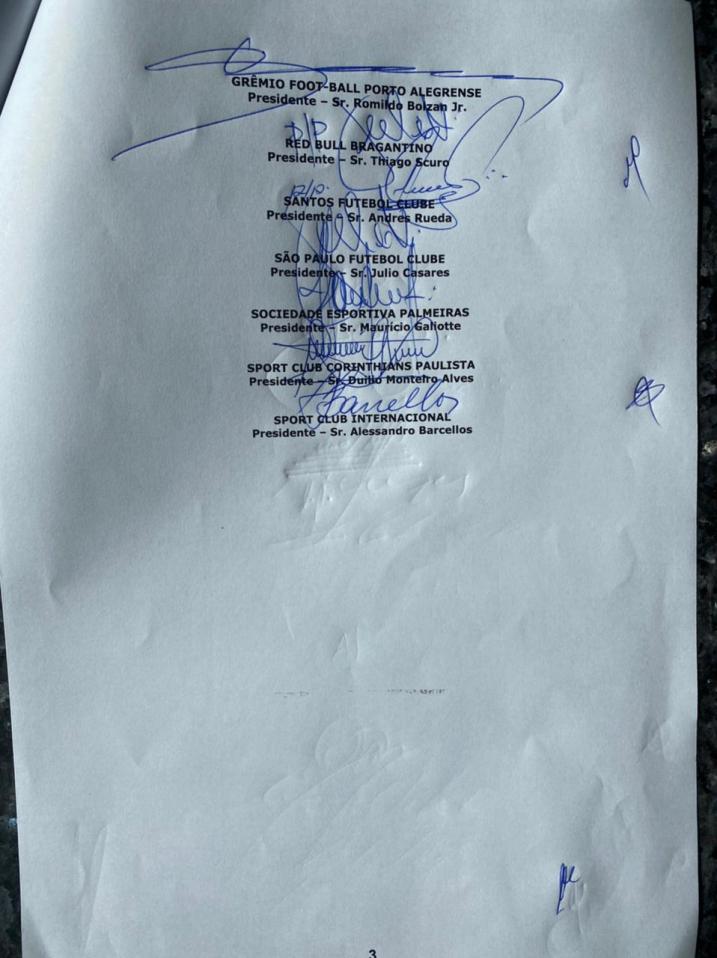 GRÊMIO FOOT-BALL PORTO ALEGRENSE
Presidente – Sr. Romildo Bolzan Jr.
P/P
RED BULL BRAGANTINO
Presidente – Sr. Thiago Scuro
P/P.
SANTOS FUTEBOL CLUBE
Presidente – Sr. Andres Rueda
SÃO PAULO FUTEBOL CLUBE
Presidente – Sr. Julio Casares
SOCIEDADE ESPORTIVA PALMEIRAS
Presidente – Sr. Mauricio Galiotte
SPORT CLUB CORINTHIANS PAULISTA
Presidente – Sr. Duilio Monteiro Alves
SPORT CLUB INTERNACIONAL
Presidente – Sr. Alessandro Barcellos
3